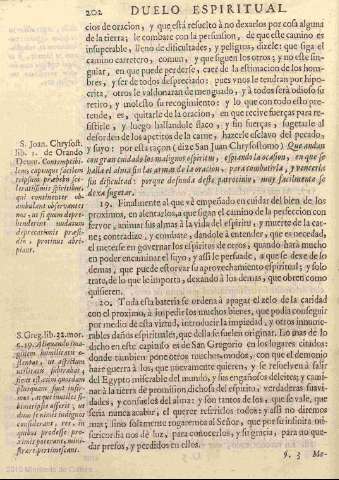 202 DUELO ESPIRITUAL
cios de oracion, y que está resuelto à no dexarlos por cosa alguna
de la tierra; le combate con la persuasion, de que este camino es
insuperable, lleno de dificultades, y peligros, dizele: que siga el
camino carretero, comun, y que siguen los otros; y no este sin-
gular, en que puede perderse, caer de la estimacion de los hom-
bres, y ser de todos despreciado: pues vnos le tendran por hipo-
crita, otros le valdonaran de menguado, y à todos será odioso su
retiro, y molesto su recogimiento: y lo que con todo esto pre-
tende, es, quitarle de la oracion, en que recive fuerças para re-
sistirle, y luego hallandole flaco, y sin fuerças, sugetarle al
desorden de los apetitos de la carne, hazerle esclavo del pecado,
y suyo: por esta raçon (dize San Juan Chrysostomo) Que andan
con gran cuidado los malignos espiritus, espiando la ocasion, en que se
halla el alma sin las armas de la oracion, para combatirla, y vencerla
sin dificultad: porque desnuda deste patrocinio, muy facilmente se
dexa sugetar.
S. Joan. Chrysost.
lib. 1. de Orando
Deum.
19. Finalmente al que vè empeñado en cuidar del bien de los
proximos, en alentarlos, à que sigan el camino de la perfeccion con
fervor, animar sus almas à la vida del espiritu, y muerte de la car-
ne; contradize, y combate, dandole à entender, que es necedad,
el meterse en governar los espiritus de otros, quando hará mucho
en poder encaminar el suyo, y assi le persuade, à que se dexe de so
demas, que puede estorvar su aprovechamiento espiritual; y solo
trate, de lo que le importa, dexando à los demas, que obren como
quisieren.
20. Toda esta bateria se ordena à apagar el zelo de la caridad
con el proximo, à impedir los muchos bienes, que podia conseguir
por medio de esta virtud, introducir la impiedad, y otros innume-
rables daños espirituales, que della suelen originar. Lo mas de lo
dicho en este capitulo es de San Gregorio en los lugares citados:
donde tambien pone otros muchos modos, con que el demonio
haze guerra à los, que nuevamente quieren, y se resuelven à salir
del Egypto miserable del mundo, y sus engañosos deleites; y cami-
nar à la tierra de promission dichosa del espiritu, verdaderas suavi-
dades, y consuelos del alma: y son tantos de los, que se vale, que
seria nunca acabar, el querer referirlos todos: y assi no diremos
mas; sino solamente rogaremos al Señor, que por su infinita mi-
sericordia nos dè luz, para conocerlos, y su gracia, para no que-
dar presos, y perdidos en ellos.
S. Greg. lib. 22. mor.
§. 3 Me-